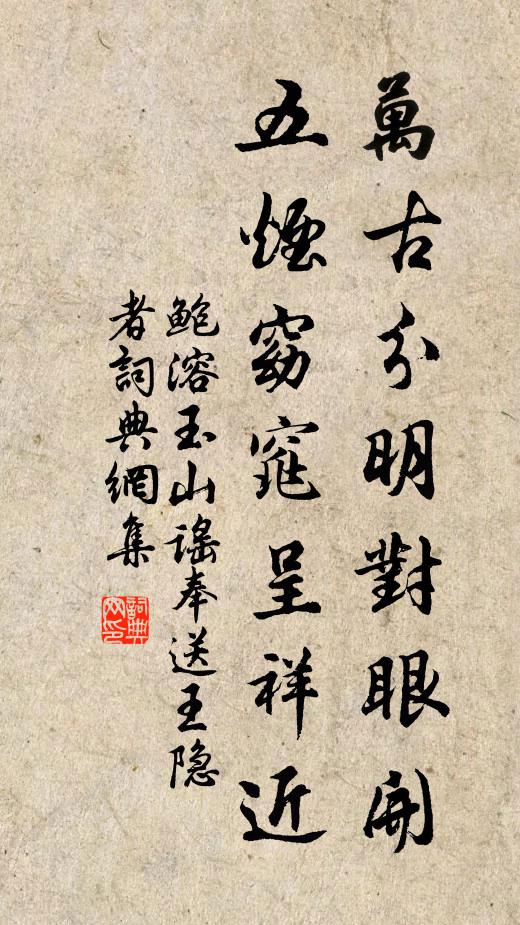 萬古分明對眼開
五煙窈窕呈祥近
鲍溶玉山谣奉送王隐
者詞典網集
詞典网印